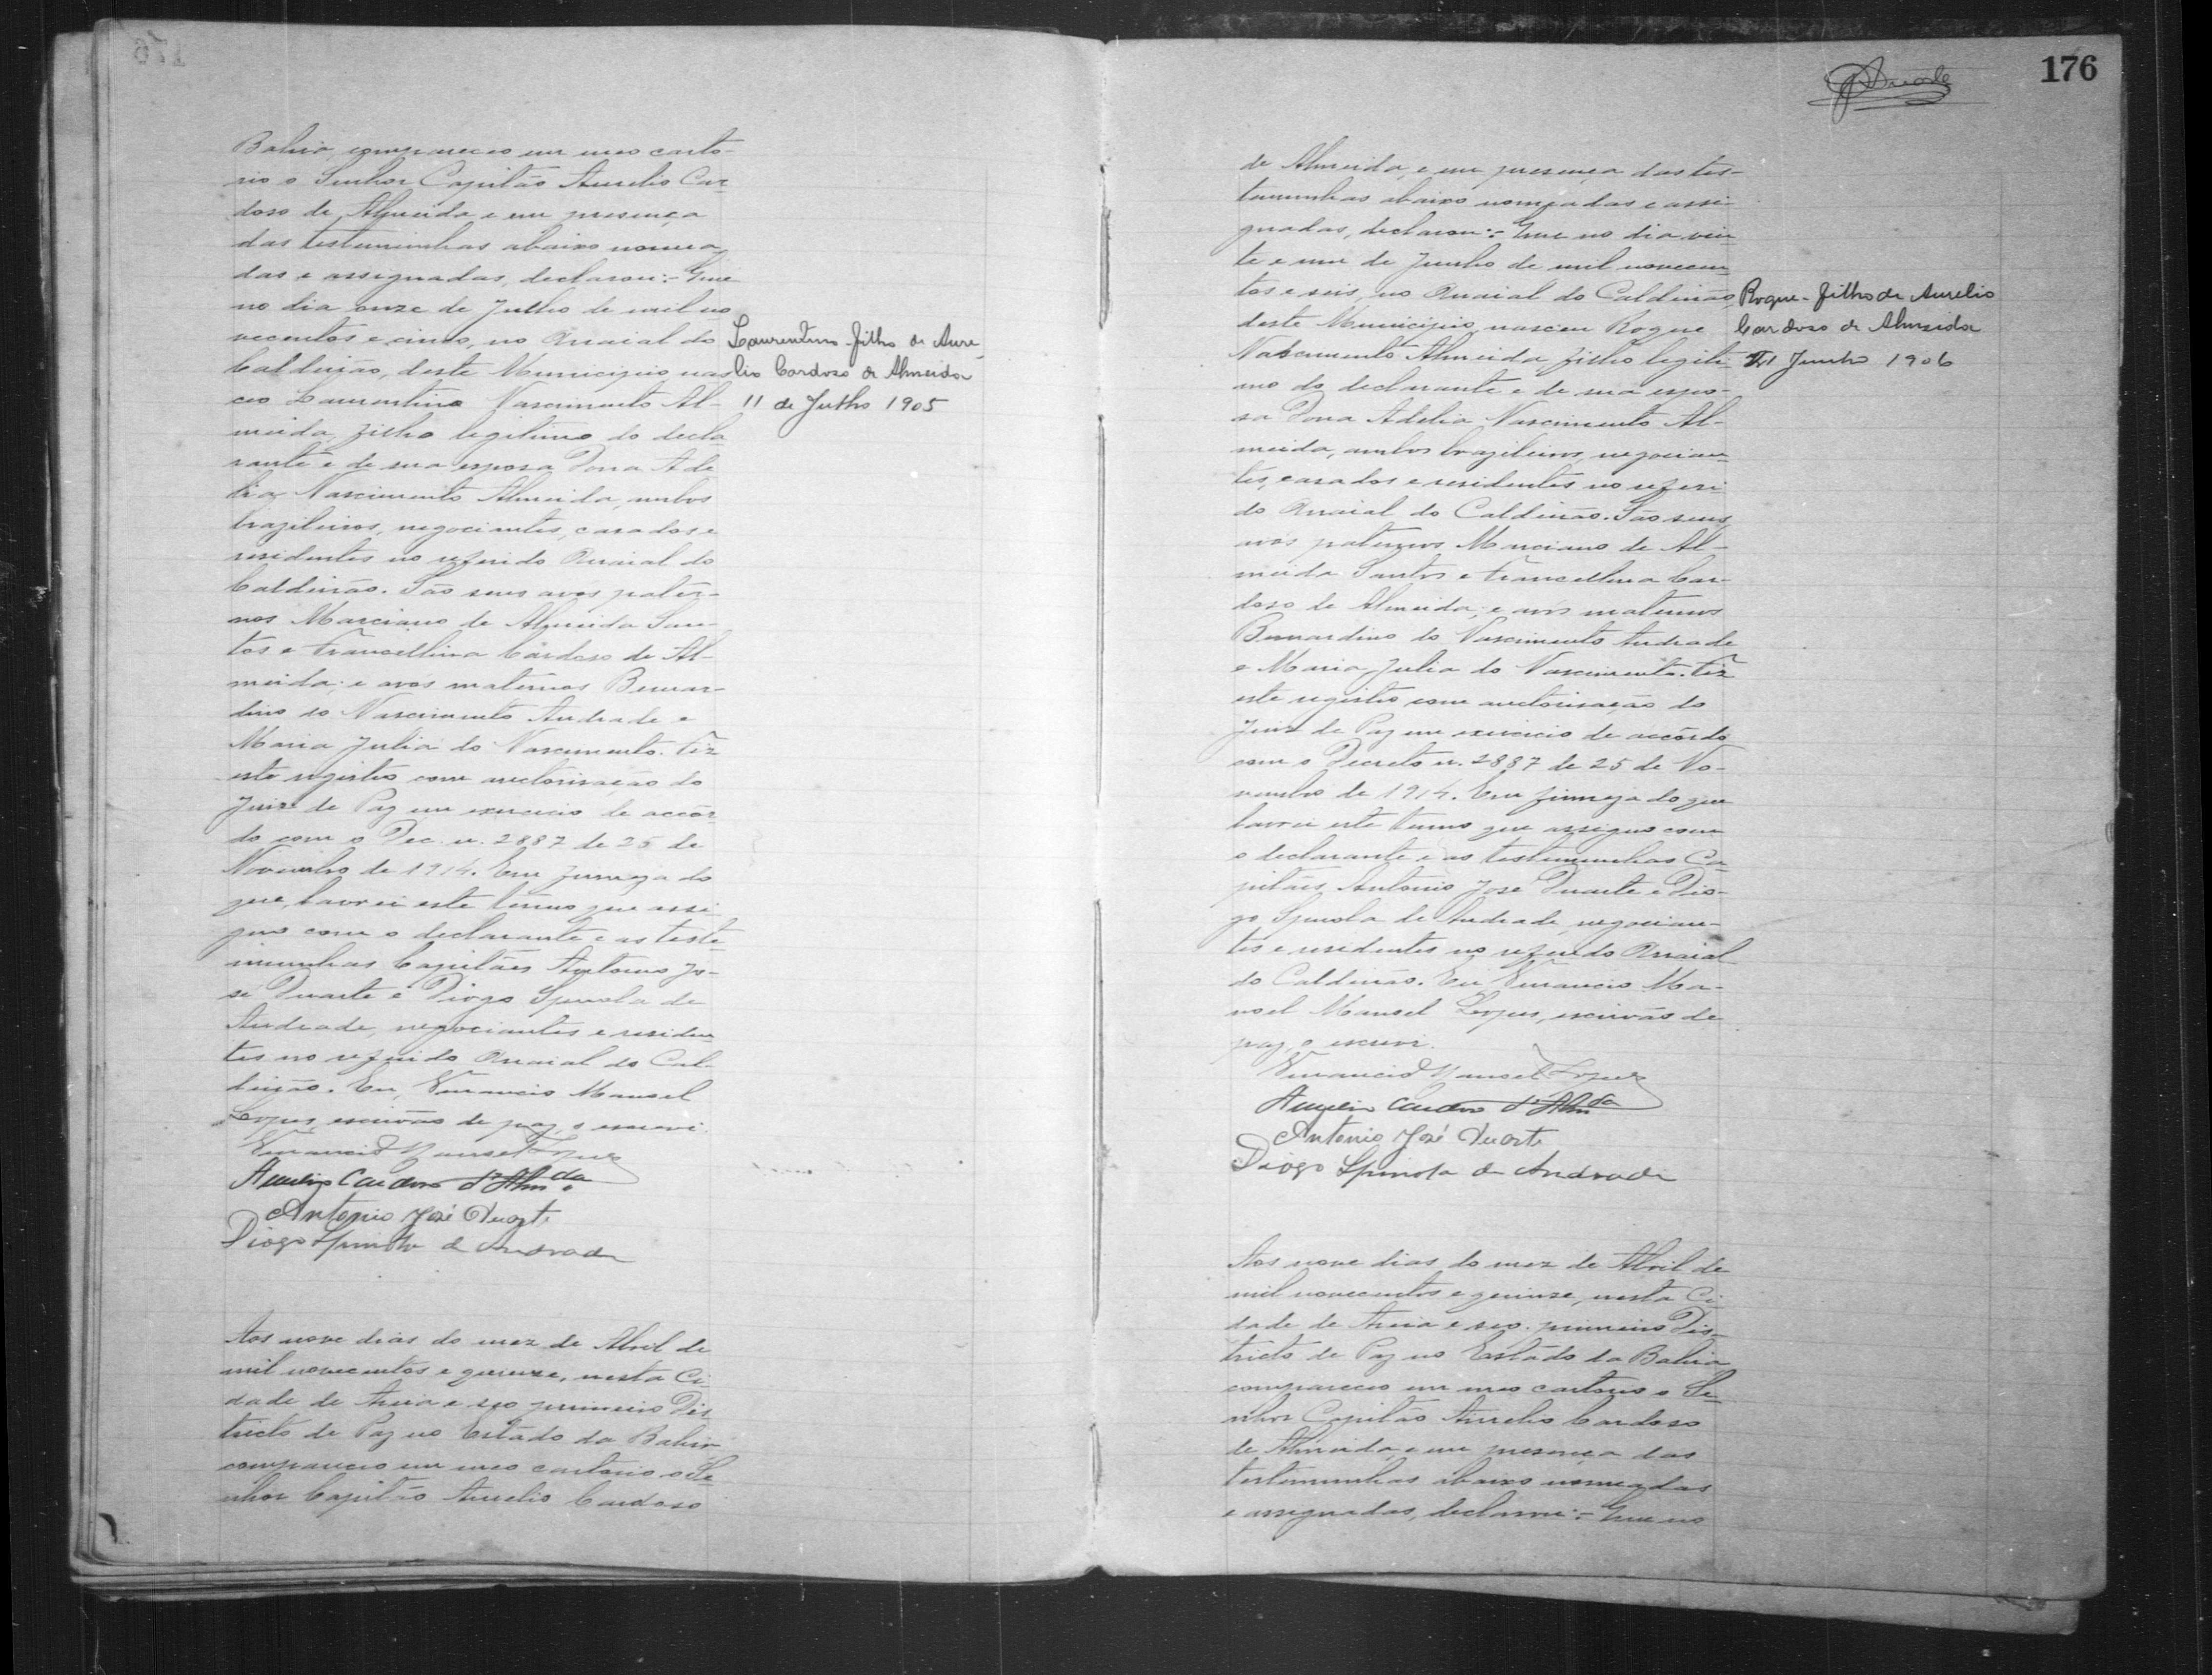 Bahia, compareceo em meo carto-
rio o Senhor Capitão Aurelio Car-
doso de Almeida e em presença
das testemunhas abaixo nomea-
das e assignadas, declarou:- Que
no dia onze de Julho de mil no
vecentos e cinco, no Arraial do
Caldeirão, deste Municipio nas
ceo Laurentino Nascimento Al-
meida, filho legitimo do decla-
rante e de sua esposa Dona Ade
lia Nascimento Almeida, ambos
brazileiros, negociantes, casados e
residentes no referido Arraial do
Caldeirão. São seus avós pater-
nos Marciano de Almeida San-
tos e Francellina Cardoso de Al-
meida; e avós maternos Bernar-
dino do Nascimento Andrade e
Maria Julia do Nascimento. Fiz
este registro com auctorisação do
Juiz de Paz em exercicio de accôr-
do com o Dec. n. 2887 de 25 de
Novembro de 1914. Em firmeza do
que, lavrei este termo que assi
gno com o declarante e as teste-
munhas Capitães Antonio Jo-
sé Duarte e Diogo Spinola de
Andrade, negociantes e residen
tes no referido Arraial do Cal-
deirão. Eu, Venancio Manoel
Lopes, escrivão de paz, o escrevi.
Venancio Manoel Lopes
Aurelio Cardoso d'Almda
Antonio José Duarte
Diogo Spinola de Andrade
Laurentino filho de Aure-
lio Cardoso de Almeida
11 de Julho 1905
Aos nove dias do mez de Abril de
mil novecentos e quinze, nesta Ci
dade de Areia e seo primeiro Dis
tricto de Paz no Estado da Bahia
compareceo em meo cartorio o Se-
nhor Capitão Aurelio Cardoso
176
de Almeida, e em presença das tes-
temunhas abaixo nomeadas e assi-
gnadas, declarou:- Que no dia vin
te e um de Junho de mil novecen
tos e seis, no Arraial do Caldeirão,
deste Municipio, nasceu Roque
Nascimento Almeida, filho legiti-
mo do declarante e de sua espo-
sa Dona Adelia Nascimento Al-
meida, ambos brazileiros, negocian
tes, casados e residentes no referi
do Arraial do Caldeirão. São seus
avós paternos Marciano de Al-
meida Santos e Francellina Car-
doso de Almeida; e avós maternos
Bernardino do Nascimento Andrade
e Maria Julia do Nascimento. Fiz
este registro com auctorisação do
Juiz de Paz em exercicio de accôrdo
com o Decreto n. 2887 de 25 de No-
vembro de 1914. Em firmeza do que
lavrei este termo que assigno com
o declarante e as testemunhas Ca
pitães Antonio José Duarte e Dio-
go Spinola de Andrade, negocian-
tes e residentes no referido Arraial
do Caldeirão. Eu Venancio Ma-
noel Manoel Lopes, escrivão de
paz, o escrevi.
Venancio Manoel Lopes
Aurelio Cardoso d'Almda
Antonio José Duarte
Diogo Spinola de Andrade
Roque - filho de Aurelio
Cardoso de Almeida
21 Junho 1906
Aos nove dias do mez de Abril de
mil novecentos e quinze, nesta Ci
dade de Areia e seo primeiro Dis-
tricto de Paz no Estado da Bahia
compareceo em meo cartorio o Se-
nhor Capitão Aurelio Cardoso
de Almeida, e em presença das
testemunhas abaixo nomeadas
e assignadas, declarou:- Que no